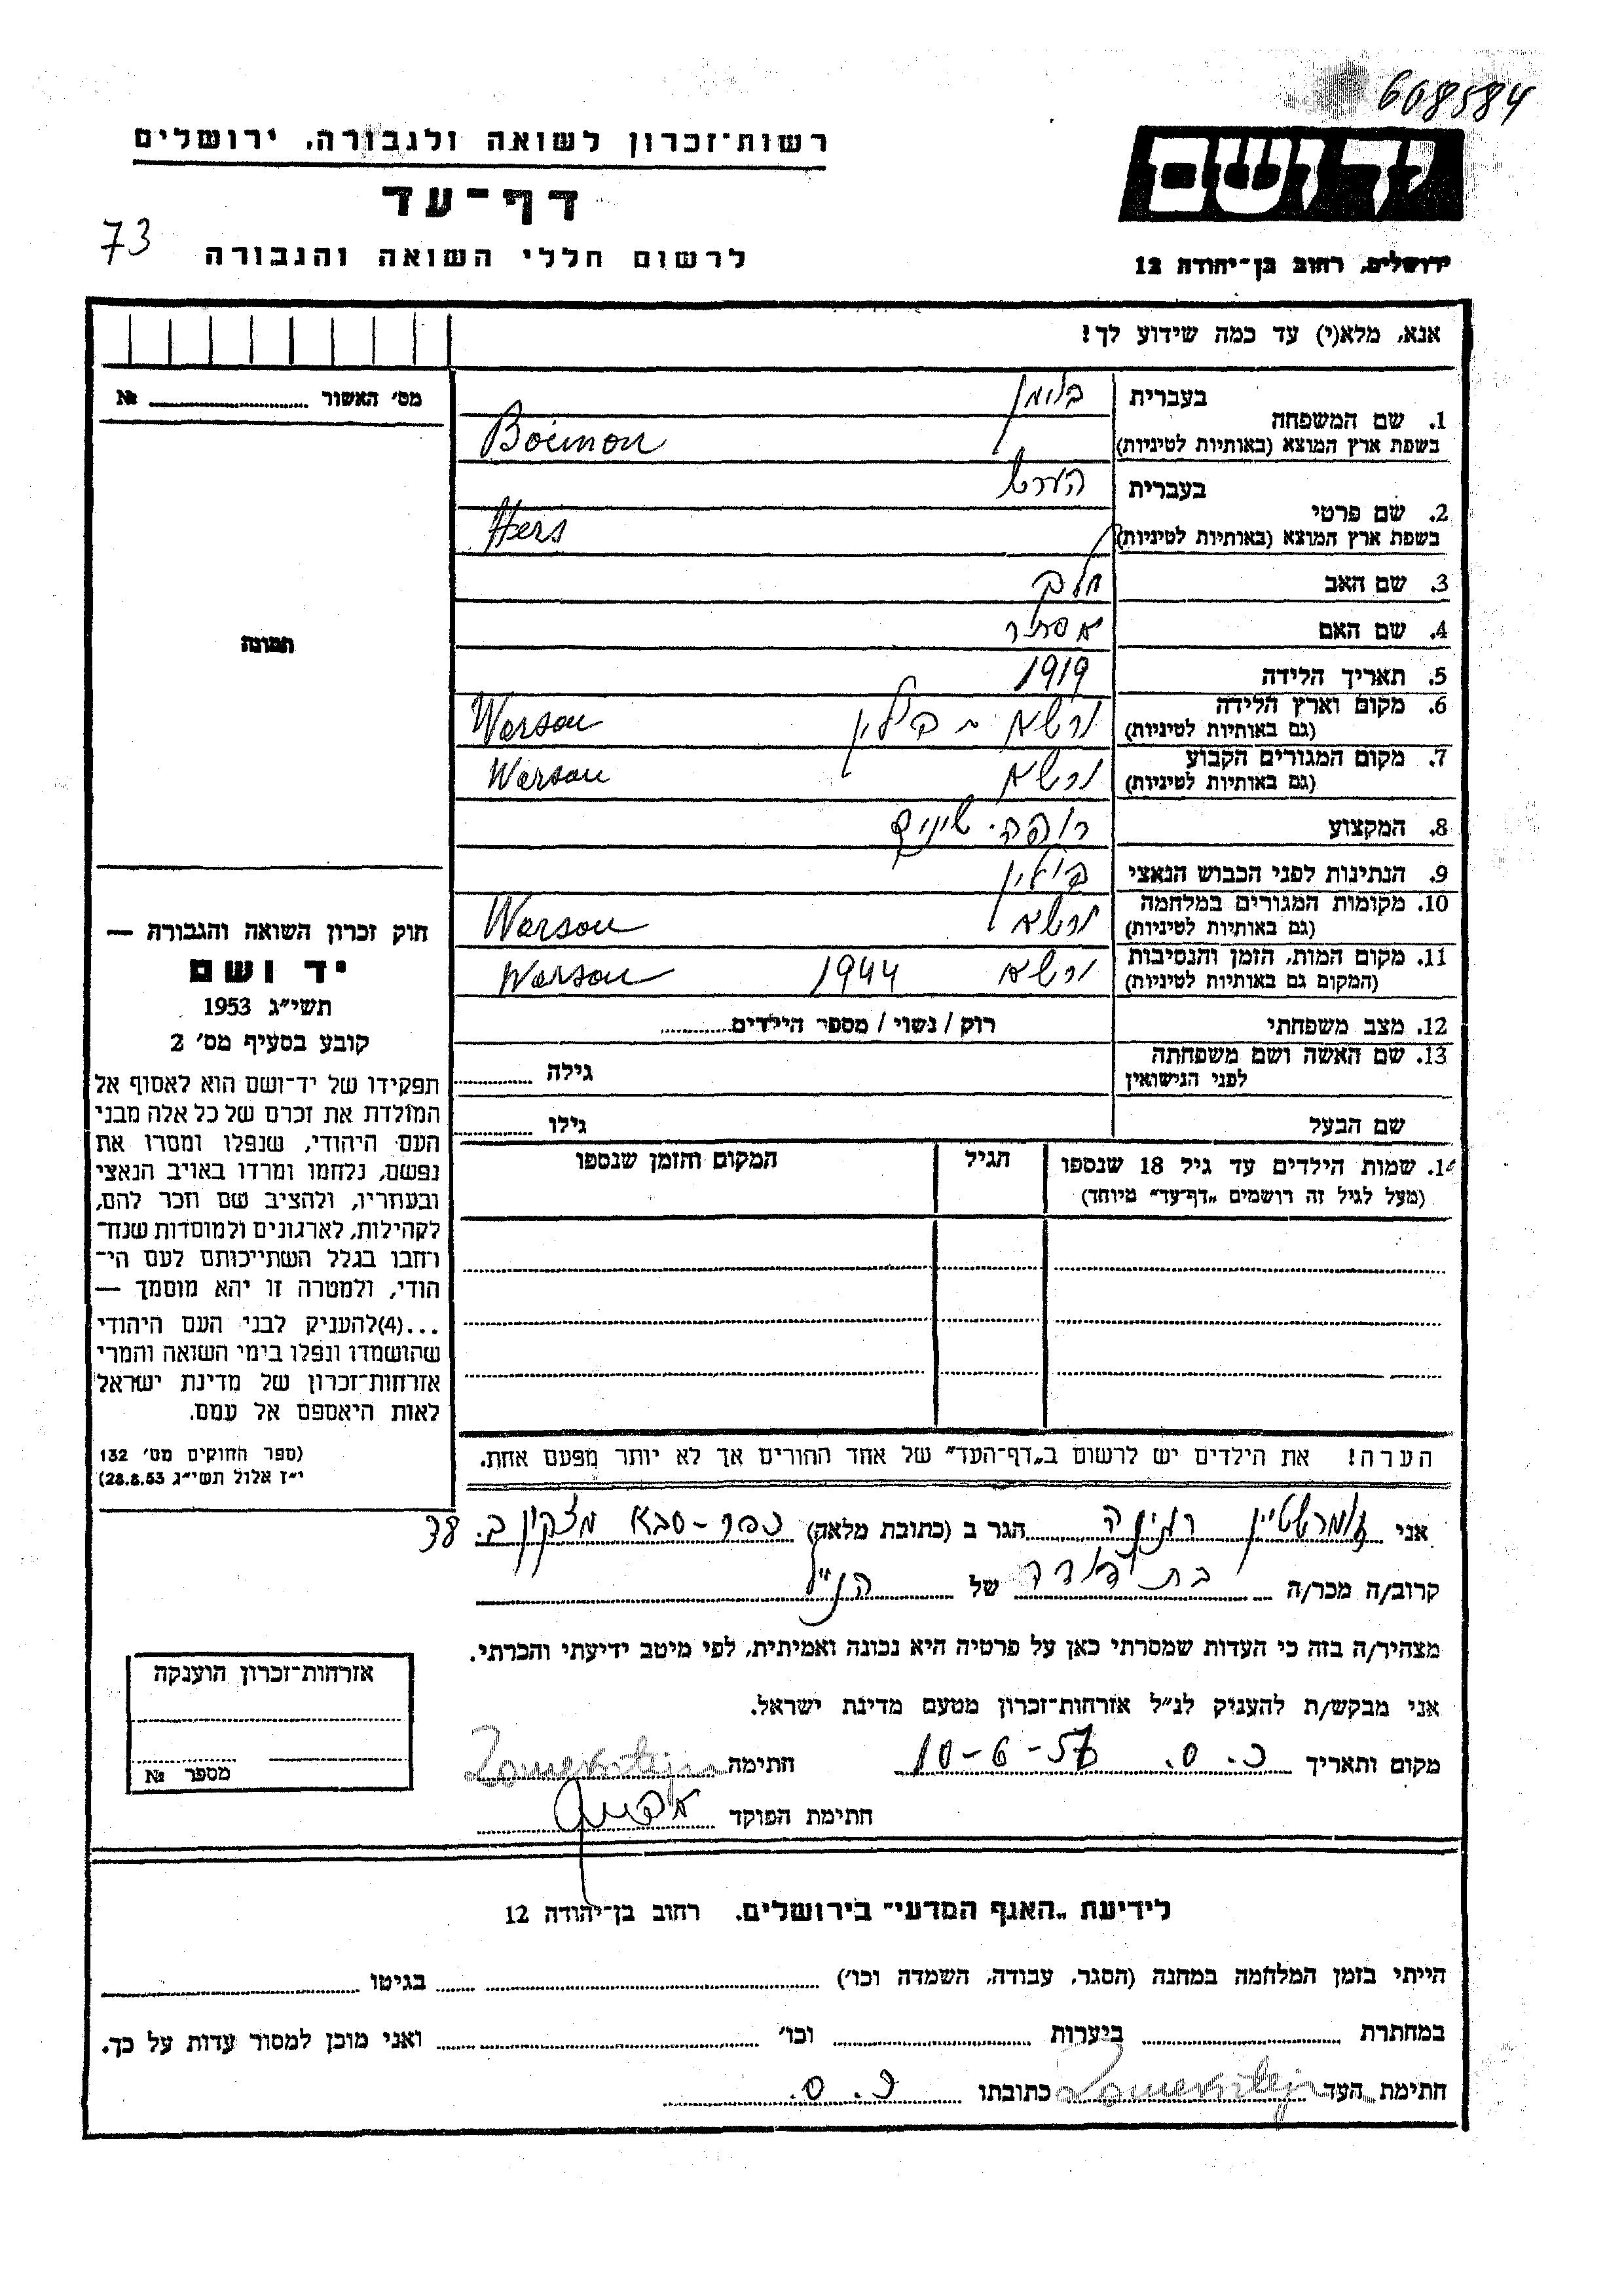 608584
רשות־זכרון לשואה ולגבורה, ירושלים
דף־עד
73
לרשום חללי השואה והגבורה
יד ושם
ירושלים, רחוב בן־יהודה 12
אנא, מלא(י) עד כמה שידוע לך!
מס׳ האשור ........ №
תמונה
חוק זכרון השואה והגבורה —
יד ושם
תשי״ג 1953
קובע בסעיף מס׳ 2
תפקידו של יד־ושם הוא לאסוף אל
המולדת את זכרם של כל אלה מבני
העם היהודי, שנפלו ומסרו את
נפשם, נלחמו ומרדו באויב הנאצי
ובעוזריו, ולהציב שם וזכר להם,
לקהילות, לארגונים ולמוסדות שנח־
רבו בגלל השתייכותם לעם הי־
הודי, ולמטרה זו יהא מוסמך —
...(4) להעניק לבני העם היהודי
שהושמדו ונפלו בימי השואה והמרי
אזרחות־זכרון של מדינת ישראל
לאות היאספם אל עמם.
(ספר החוקים מס׳ 132
י״ז אלול תשי״ג 28.8.53)
1. שם המשפחה בעברית
בשפת ארץ המוצא (באותיות לטיניות) Boimon
2. שם פרטי בעברית הערש
בשפת ארץ המוצא (באותיות לטיניות) Hers
3. שם האב
4. שם האם אסתר
5. תאריך הלידה 1919
6. מקום וארץ הלידה ורשא - פולין Warsou
(גם באותיות לטיניות)
7. מקום המגורים הקבוע ורשא Warsou
(גם באותיות לטיניות)
8. המקצוע רופה שינים
9. הנתינות לפני הכבוש הנאצי פולין
10. מקומות המגורים במלחמה ורשא Warsou
(גם באותיות לטיניות)
11. מקום המות, הזמן והנסיבות ורשא 1944 Warsou
(המקום גם באותיות לטיניות)
12. מצב משפחתי רוק / נשוי / מספר הילדים........
13. שם האשה ושם משפחתה גילה ........
לפני הנישואין
שם הבעל גילו ........
14. שמות הילדים עד גיל 18 שנספו הגיל המקום והזמן שנספו
(מעל לגיל זה רושמים „דף־עד״ מיוחד)
הערה! את הילדים יש לרשום ב„דף־העד״ של אחד ההורים אך לא יותר מפעם אחת.
אני זומרשטיין רגינה הגר ב (כתובת מלאה) כפר-סבא 38
קרוב/ה מכר/ה בת דודה של הנ״ל
מצהיר/ה בזה כי העדות שמסרתי כאן על פרטיה היא נכונה ואמיתית, לפי מיטב ידיעתי והכרתי.
אני מבקש/ת להעניק לנ״ל אזרחות־זכרון מטעם מדינת ישראל.
מקום ותאריך כ.ס. 10-6-57 חתימה Zomersztejn
חתימת הפוקד
אזרחות־זכרון הוענקה
מספר №
לידיעת „האגף המדעי״ בירושלים. רחוב בן־יהודה 12
הייתי בזמן המלחמה במחנה (הסגר, עבודה, השמדה וכו׳) ........ בגיטו ........
במחתרת ........ ביערות ........ וכו׳ ........ ואני מוכן למסור עדות על כך.
חתימת העד Zomersztejn כתובתו כ.ס.